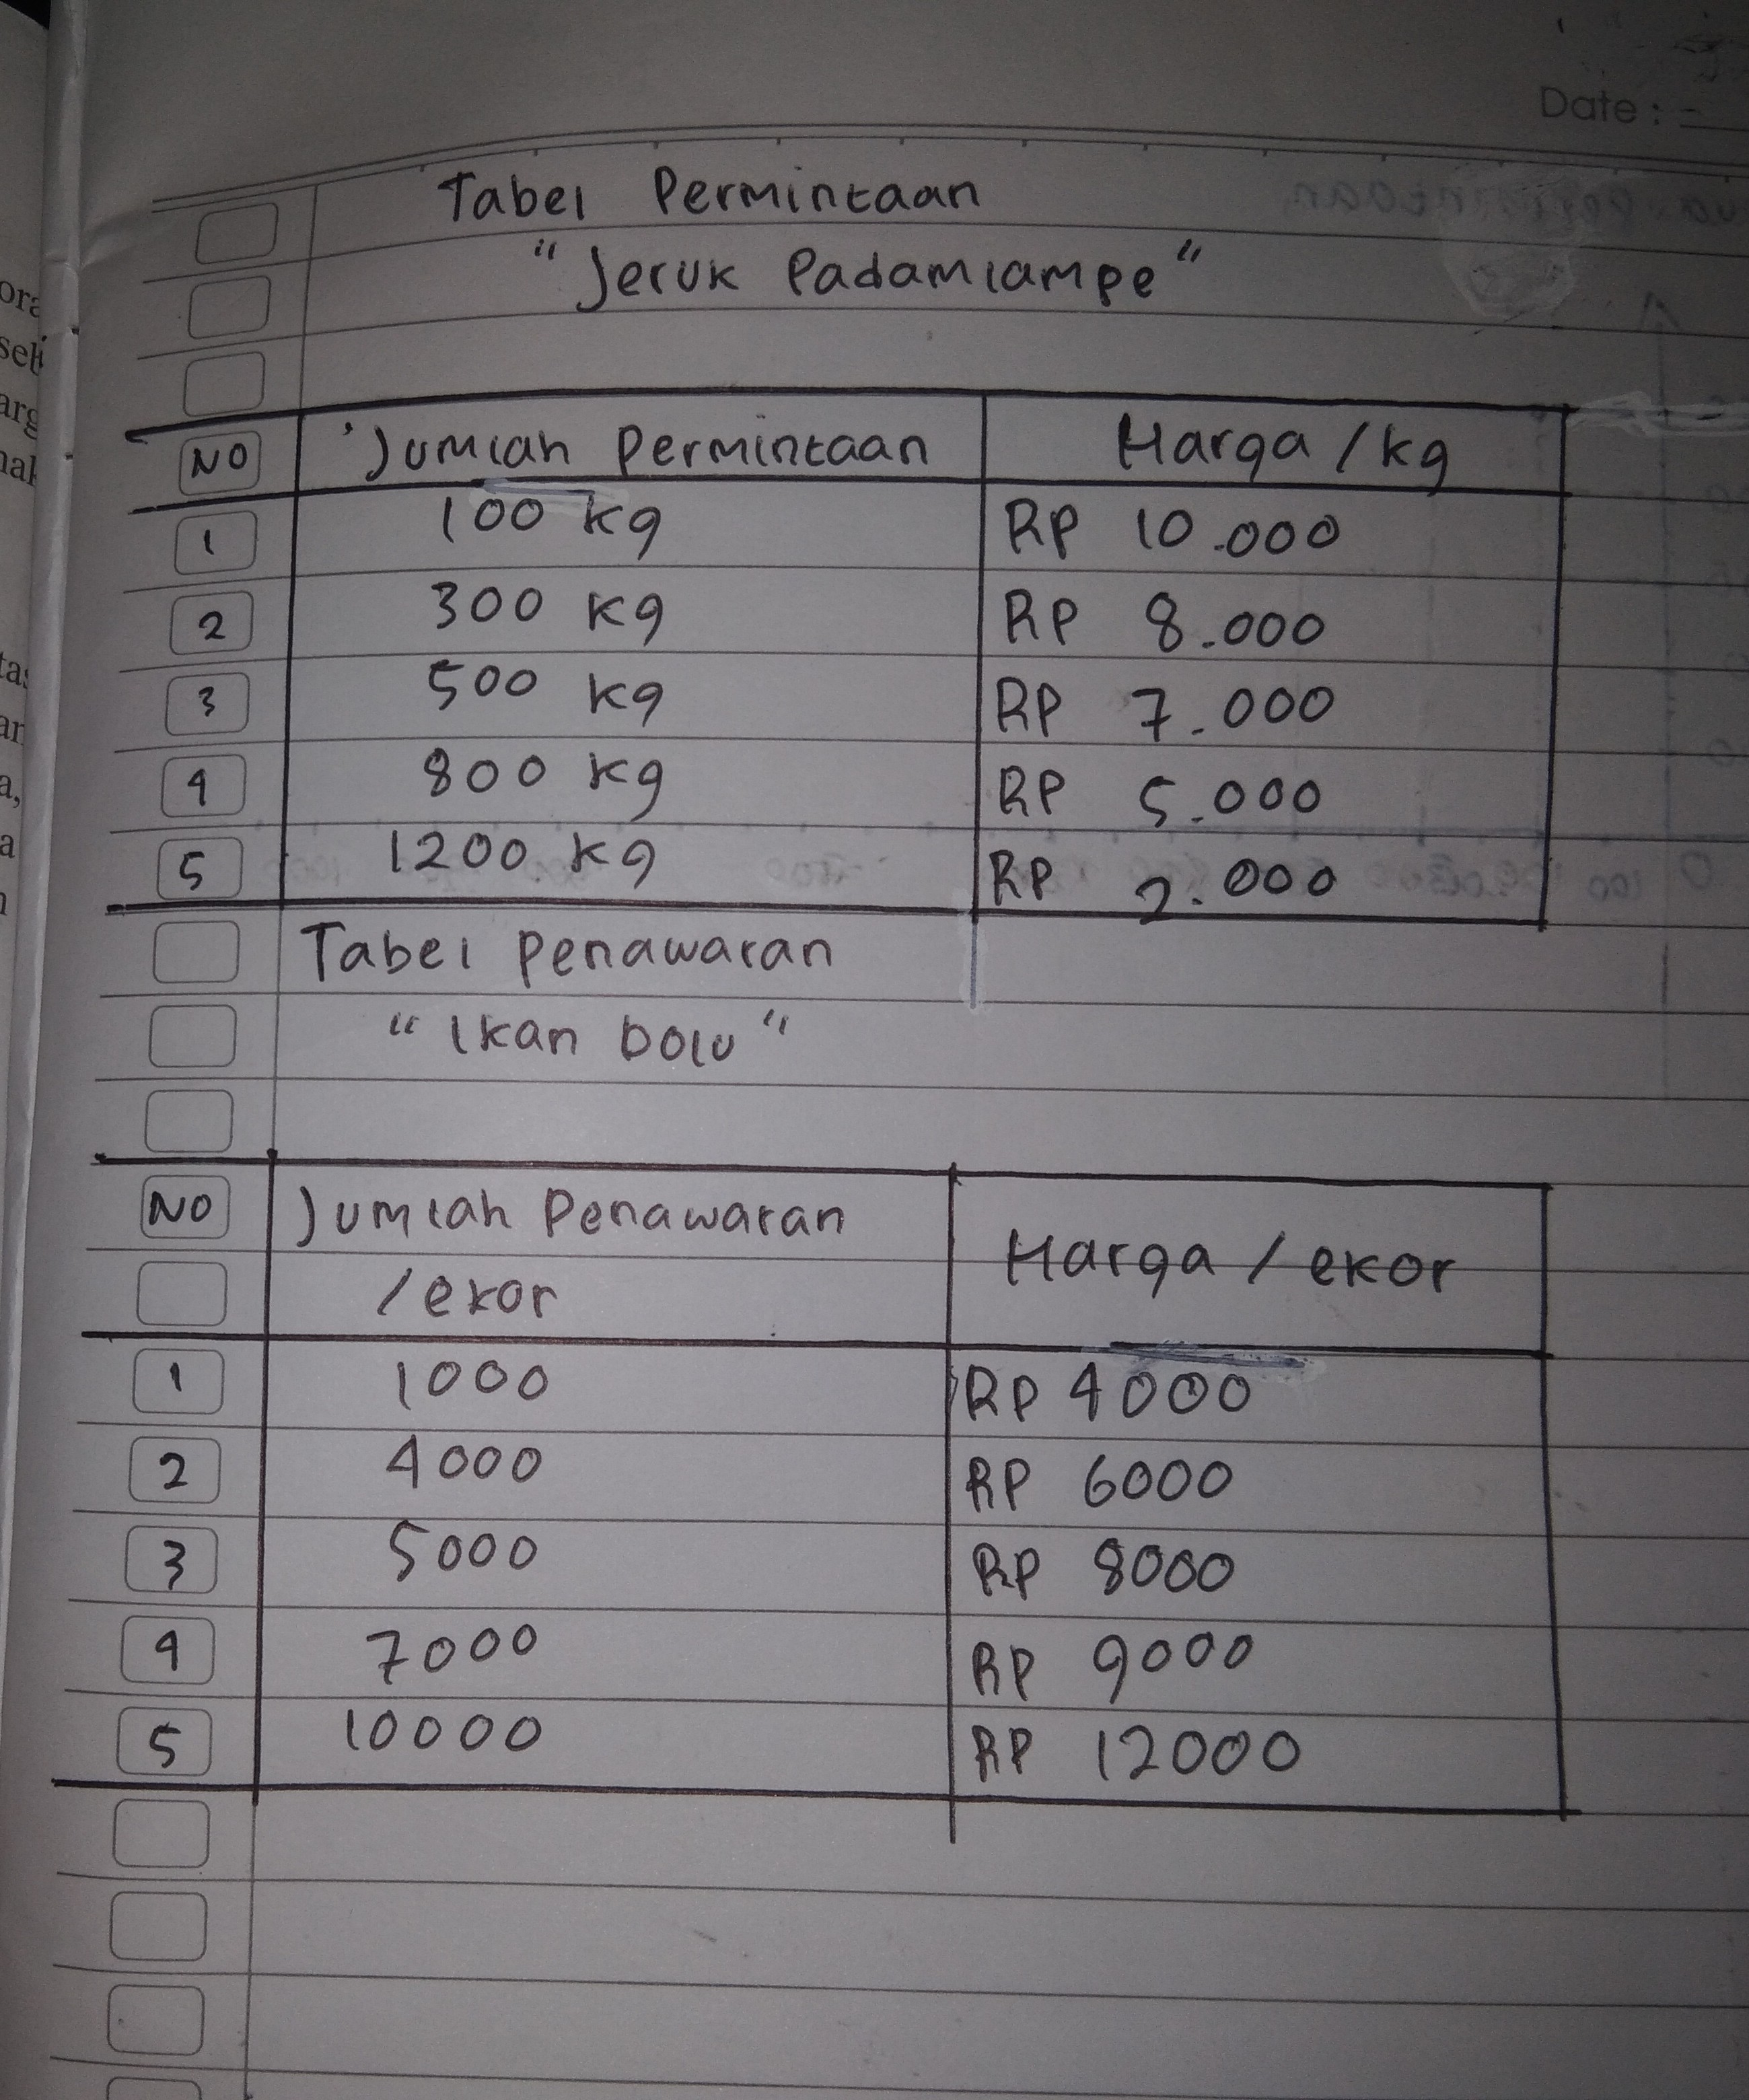 Date :
Tabel Permintaan
"Jeruk Padamlampe"
NO Jumlah Permintaan Harga / kg
1 100 kg RP 10.000
2 300 kg RP 8.000
3 500 kg RP 7.000
4 800 kg RP 5.000
5 1200 kg RP 2.000
Tabel Penawaran
"Ikan bolu"
NO Jumlah Penawaran Harga / ekor
/ ekor
1 1000 RP 4000
2 4000 RP 6000
3 5000 RP 8000
4 7000 RP 9000
5 10000 RP 12000